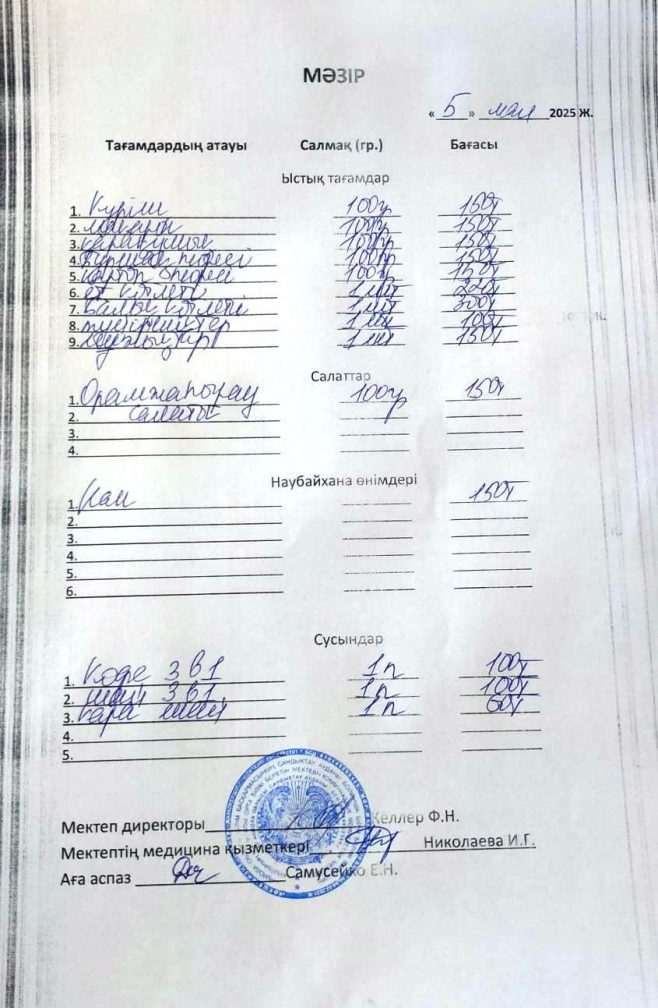 МӘЗІР
« 5 » мая 2025 Ж.
Тағамдардың атауы Салмақ (гр.) Бағасы
Ыстық тағамдар
1. Күріш 100гр 150т
2. макарон 100гр 150т
3. қарақұмық 100гр 150т
4. бұршақ пюресі 100гр 150т
5. картоп пюресі 100гр 150т
6. ет котлеті 1 шт
7. балық котлеті 1 шт 300т
8. 1 шт 100т
9. 1 шт 150т
Салаттар
1. Орамжапырақ 100гр 150т
2. салаты
3.
4.
Наубайхана өнімдері
1. Нан 150т
2.
3.
4.
5.
6.
Сусындар
1. Кофе 3 в 1 1п 100т
2. шай 3 в 1 1п 100т
3. қара шай 1п 60т
4.
5.
Мектеп директоры Келлер Ф.Н.
Мектептің медицина қызметкері Николаева И.Г.
Аға аспаз Самусейко Е.Н.